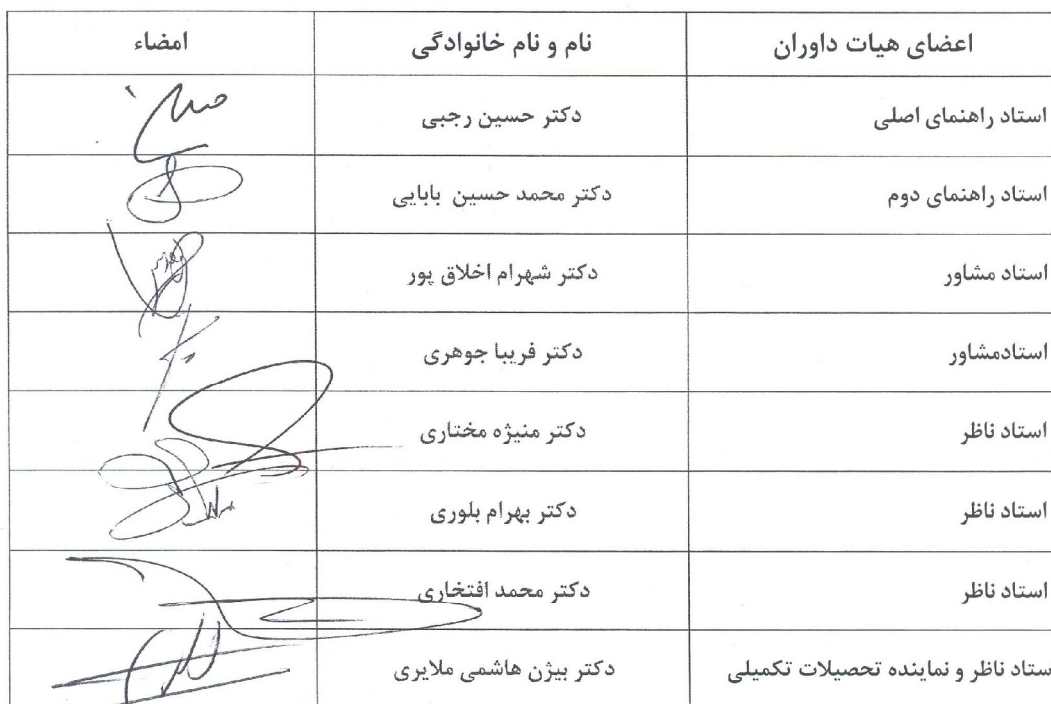 اعضای هیات داوران نام و نام خانوادگی امضاء
استاد راهنمای اصلی دکتر حسین رجبی
استاد راهنمای دوم دکتر محمد حسین بابایی
استاد مشاور دکتر شهرام اخلاق پور
استادمشاور دکتر فریبا جوهری
استاد ناظر دکتر منیژه مختاری
استاد ناظر دکتر بهرام بلوری
استاد ناظر دکتر محمد افتخاری
ستاد ناظر و نماینده تحصیلات تکمیلی دکتر بیژن هاشمی ملایری